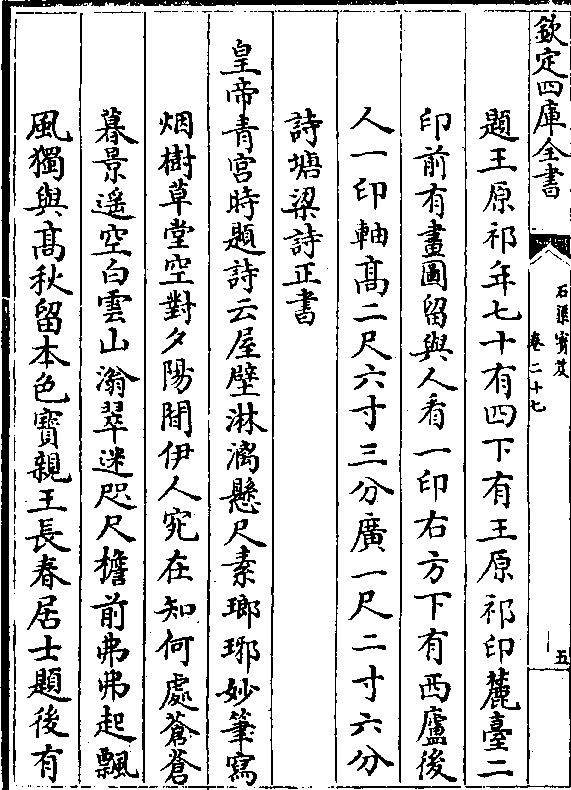 欽定四庫全書
石渠寶笈
卷二十七
五
題王原祁年七十有四下有王原祁印麓臺二
印前有畫圖留與人看一印右方下有西廬後
人一印軸高二尺六寸三分廣一尺二寸六分
詩塘梁詩正書
皇帝青宮時題詩云屋壁淋漓懸尺素瑯琊妙筆寫
烟樹草堂空對夕陽閒伊人宛在知何處蒼蒼
暮景遥空白雲山滃翠迷咫尺檐前弗弗起飄
風獨與髙秋留本色寳親王長春居士題後有